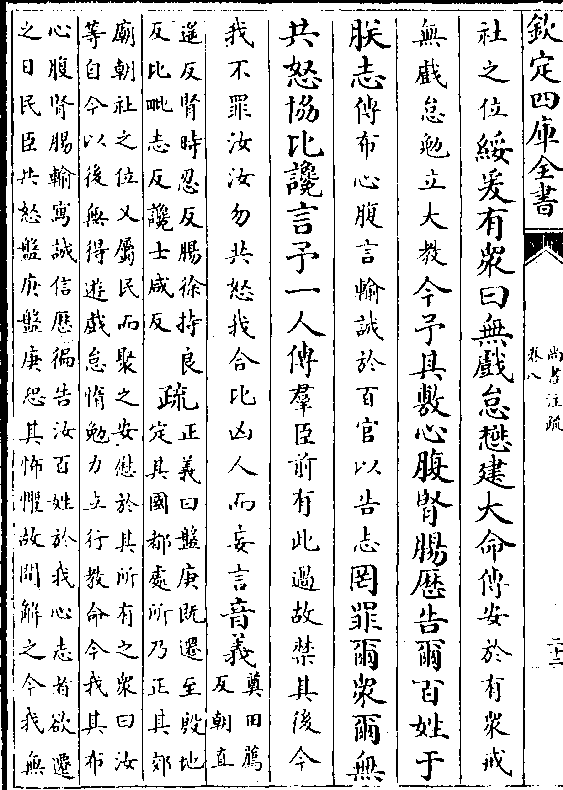 欽定四庫全書
尚書注疏
卷八
二十三
社之位綏爰有衆曰無戲怠懋建大命傳安於有衆戒
無戲怠勉立大教今予其敷心腹腎腸歷告爾百姓于
朕志傳布心腹言輸誠於百官以告志罔罪爾衆爾無
共怒協比讒言予一人傳羣臣前有此過故禁其後今
我不罪汝汝勿共怒我合比凶人而妄言音義
奠田薦
反朝直
遥反腎時忍反腸徐持良
反比毗志反讒士咸反
疏
正義曰盤庚既遷至殷地
定其國都處所乃正其郊
廟朝社之位又屬民而聚之安慰於其所有之衆曰汝
等自今以後無得遊戲怠惰勉力立行教命今我其布
心腹腎腸輸寫誠信歷徧告汝百姓於我心志者欲遷
之日民臣共怒盤庚盤庚恐其怖懼故開解之今我無